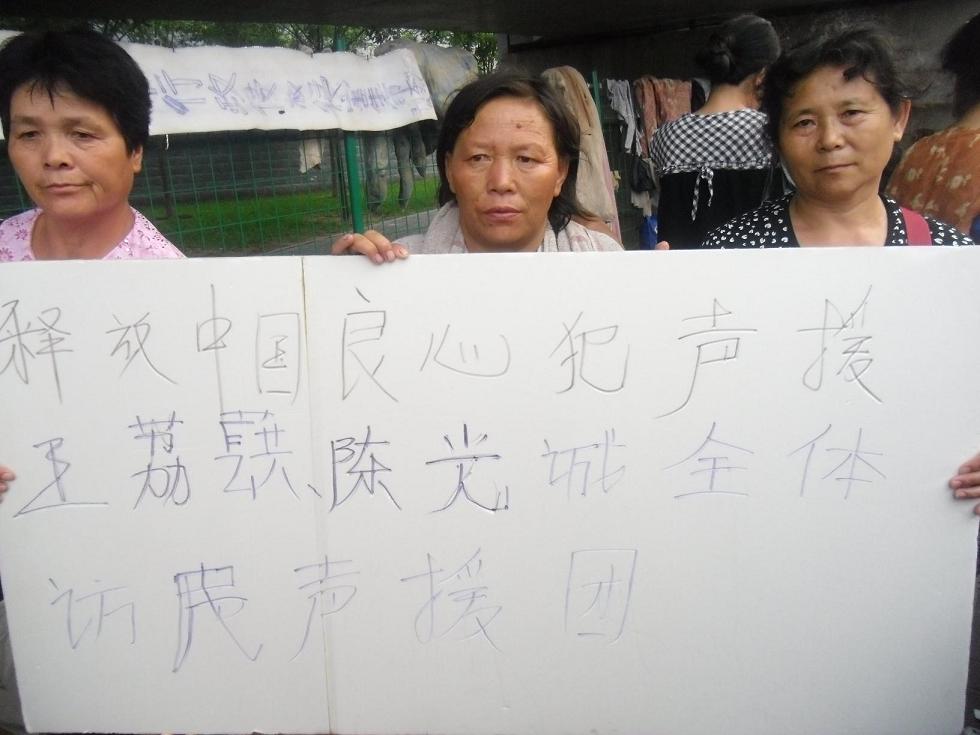 释放中国良心犯声援
王荔蕻、陈光诚全体
访民声援团